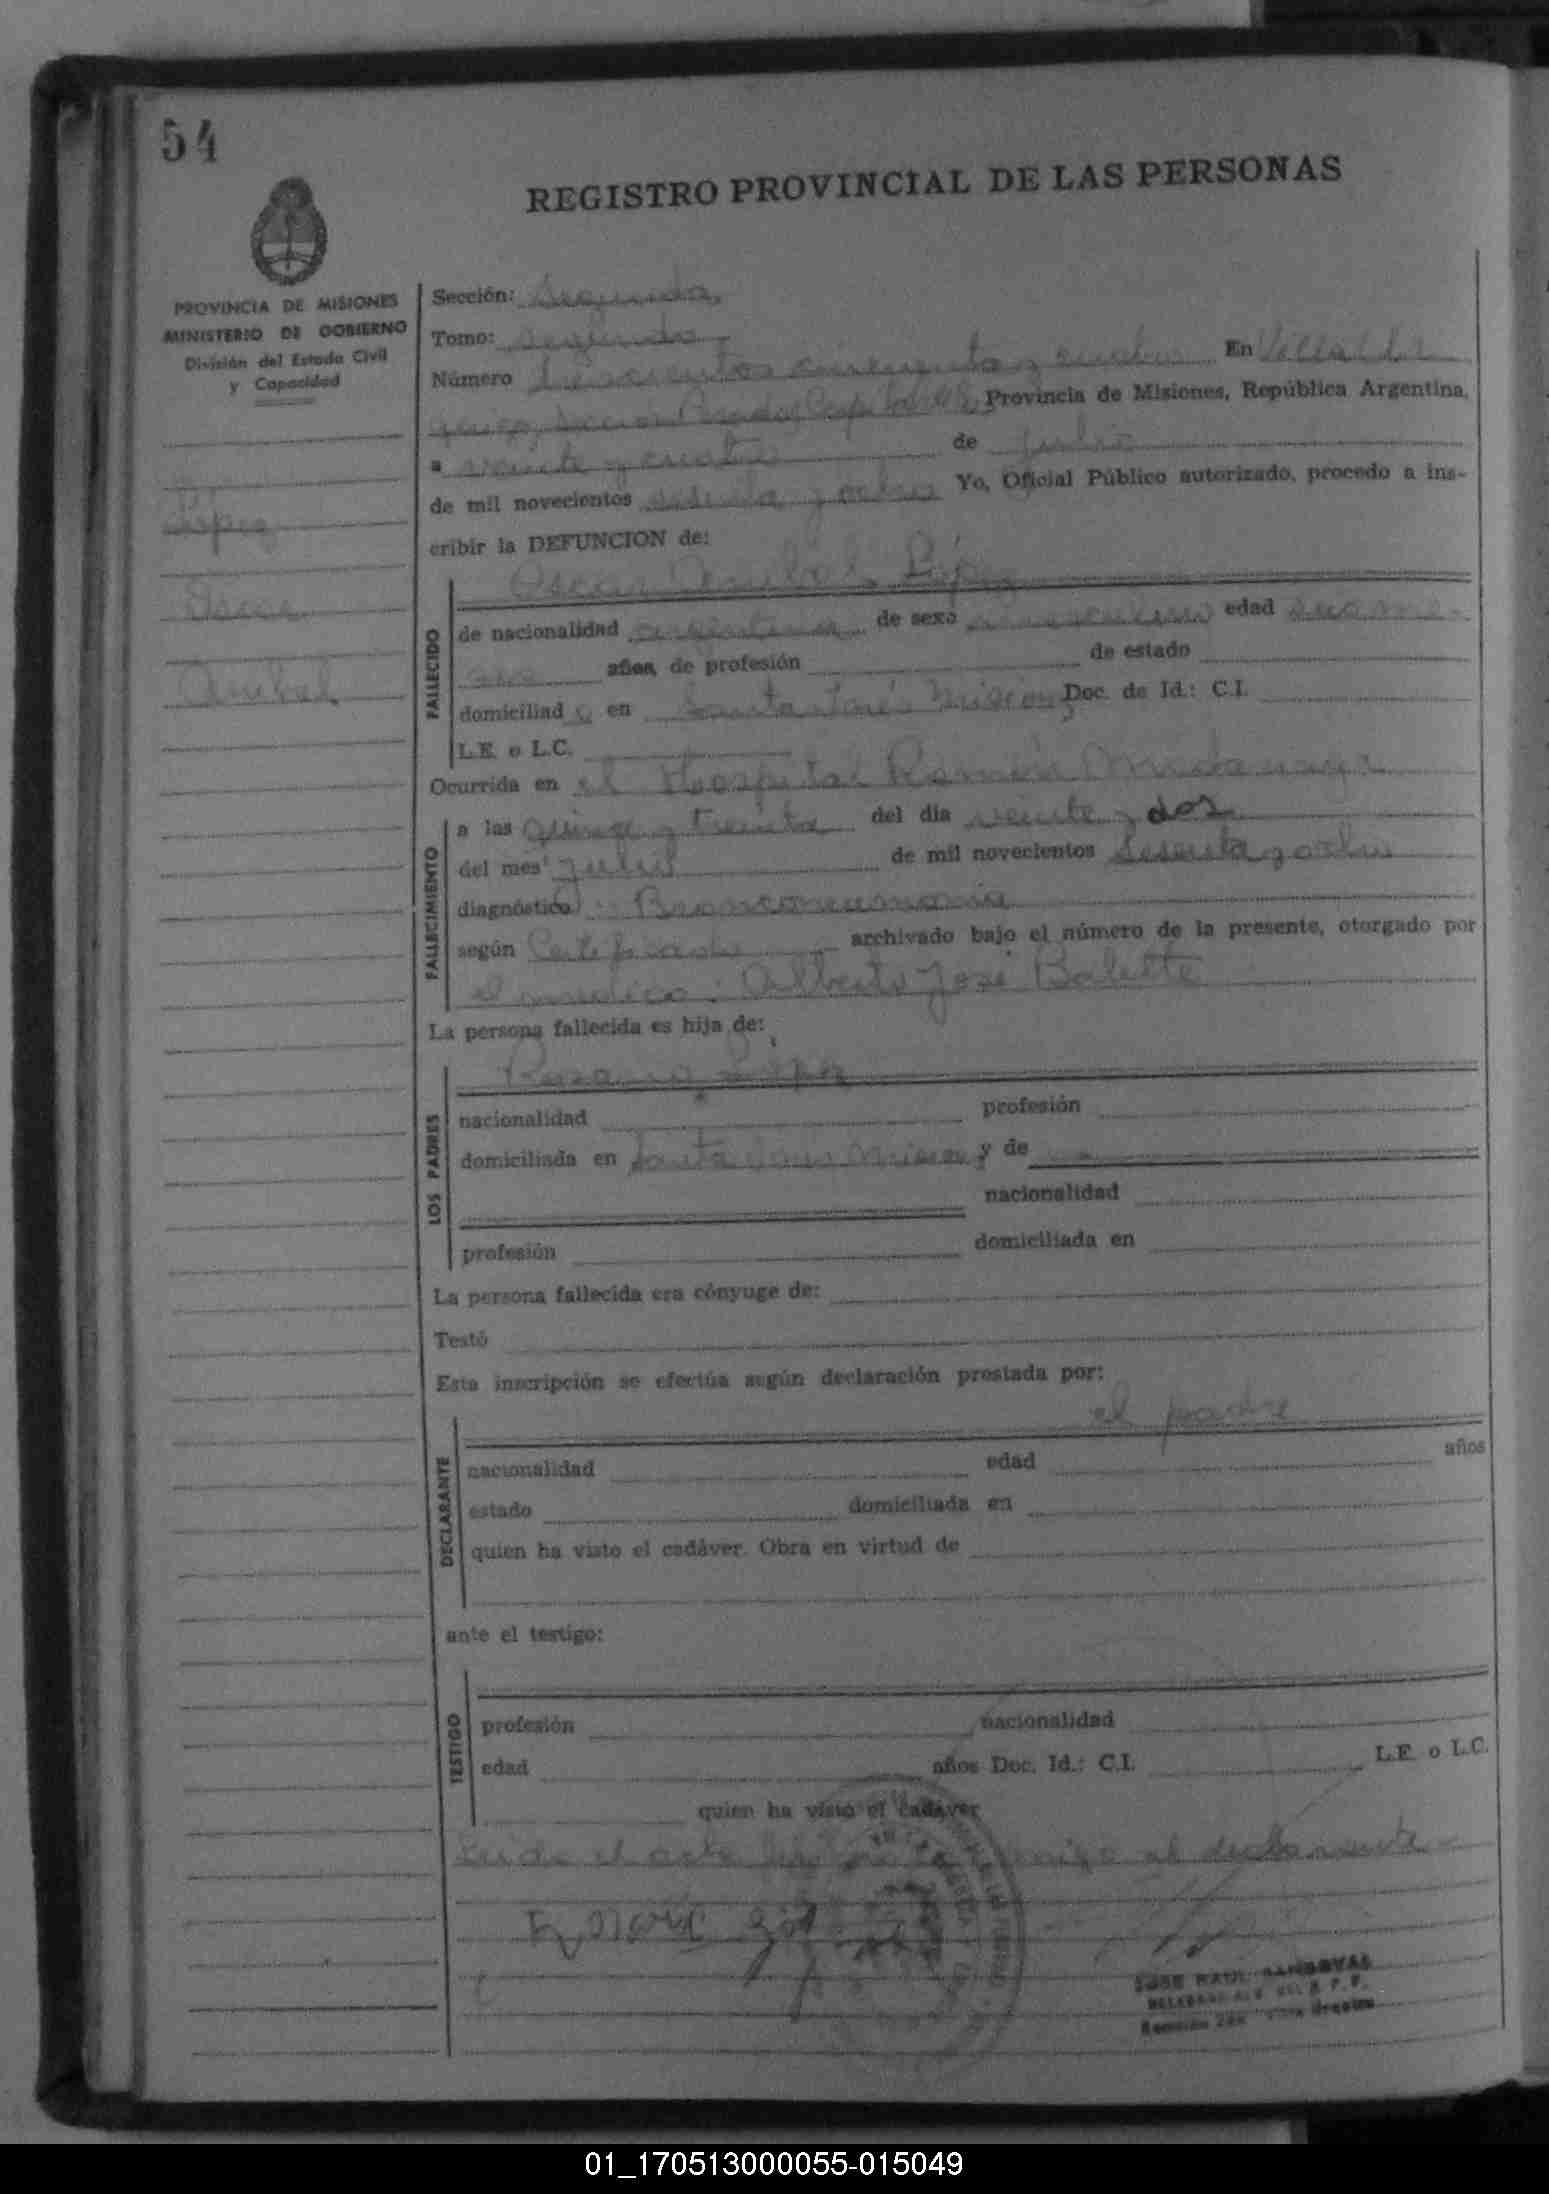 54
REGISTRO PROVINCIAL DE LAS PERSONAS
PROVINCIA DE MISIONES
MINISTERIO DE GOBIERNO
División del Estado Civil
y Capacidad
López
Oscar
Anibal
Sección: Segunda
Tomo: Segundo
Número cincuenta y cuatro En Villa Ur
quiza, Sección Posadas, Capital Provincia de Misiones, República Argentina,
a veinte y cuatro de julio
de mil novecientos sesenta y ocho Yo, Oficial Público autorizado, procedo a ins-
cribir la DEFUNCION de:
Oscar Anibal López
FALLECIDO
de nacionalidad argentina de sexo masculino edad
años, de profesión de estado
domiciliad o en Santa Inés Misiones Doc. de Id.: C.I.
L.E. o L.C.
Ocurrida en el Hospital Ramón Madariaga
FALLECIMIENTO
a las quince y treinta del día veinte y dos
del mes julio de mil novecientos sesenta y ocho
diagnóstico: Bronconeumonia
según Certificado archivado bajo el número de la presente, otorgado por
el médico: Alberto José
La persona fallecida es hija de:
López
LOS PADRES
nacionalidad profesión
domiciliada en Santa Inés Misiones y de
nacionalidad
profesión domiciliada en
La persona fallecida era cónyuge de:
Testó
Esta inscripción se efectúa según declaración prestada por:
el padre
DECLARANTE
nacionalidad edad años
estado domiciliada en
quien ha visto el cadáver. Obra en virtud de
ante el testigo:
TESTIGO
profesión nacionalidad
edad años Doc. Id.: C.I. L.E. o L.C.
quien ha visto el cadáver
Leída el acta al declarante
JOSE RAUL SANDOVAL
01_170513000055-015049